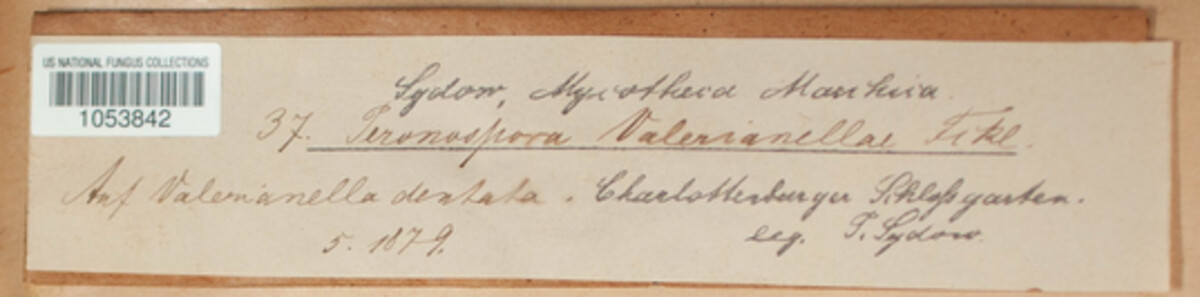 US NATIONAL FUNGUS COLLECTIONS
1053842
Sydow, Mycotheca Marchica.
37. Peronospora Valerianellae Fckl.
Auf Valerianella dentata. Charlottenburger Schloßgarten.
5. 1879. leg. P. Sydow.